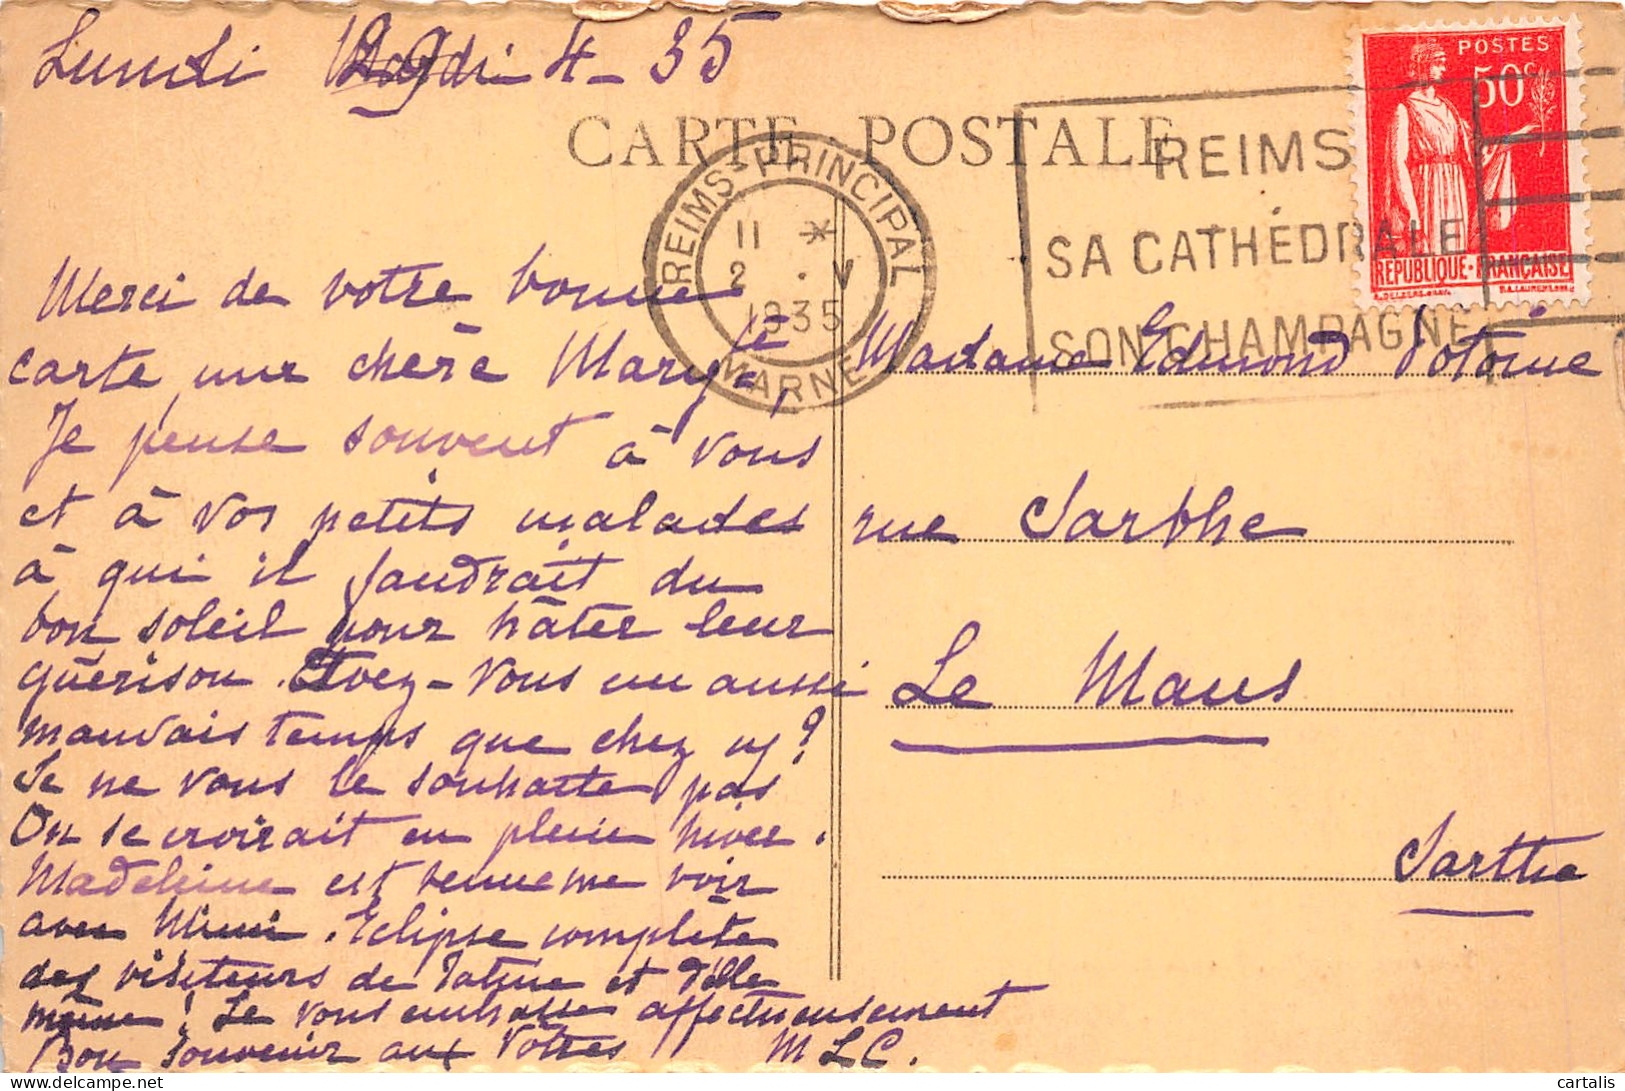 Lundi 4-35
CARTE POSTALE
POSTES
50c
RÉPUBLIQUE·FRANÇAISE
REIMS-PRINCIPAL
11 *
2 . V
1935
MARNE
REIMS
SA CATHÉDRALE
SON CHAMPAGNE
Merci de votre bonne
carte ma chère Maryte,
Je pense souvent à vous
et à vos petits malades
à qui il faudrait du
bon soleil pour hâter leur
guérison. Avez-vous un aussi
mauvais temps que chez ns?
Je ne vous le souhaite pas
On se croirait en plein hiver.
Madeleine est venue me voir
avec Mimi. Eclipse complète
des visiteurs de et d'elle
même! Je vous embrasse affectueusement
Bon souvenir aux Vôtres MLC.
Madame Edmond
rue Sarthe
Le Mans
Sarthe
cartalis